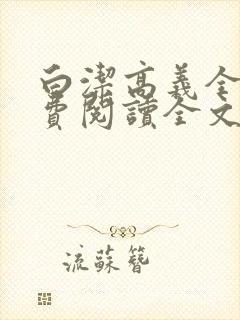 白潔高義全
費閱讀全文
流蘇簪